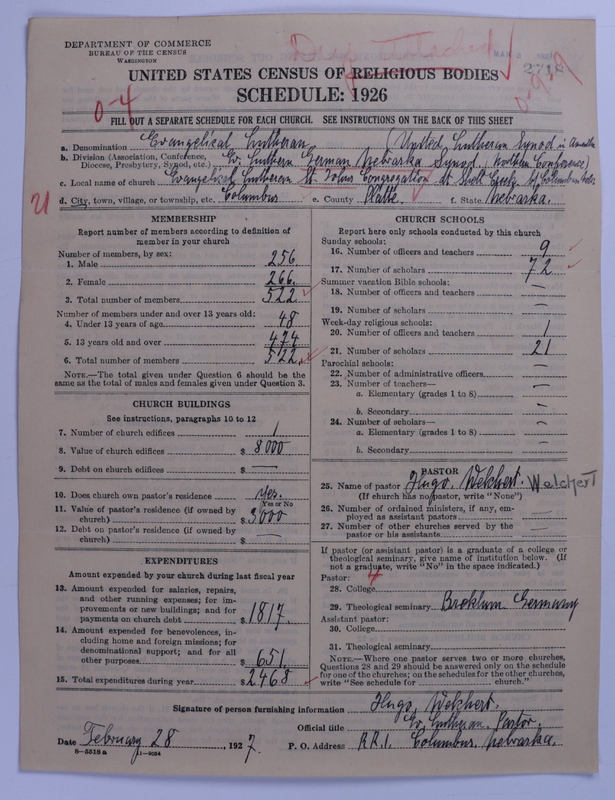 DEPARTMENT OF COMMERCE
BUREAU OF THE CENSUS
WASHINGTON
2712
UNITED STATES CENSUS OF RELIGIOUS BODIES
SCHEDULE: 1926
0-4
FILL OUT A SEPARATE SCHEDULE FOR EACH CHURCH. SEE INSTRUCTIONS ON THE BACK OF THIS SHEET
a. Denomination Evangelical Lutheran (United Lutheran Synod in America
b. Division (Association, Conference, Diocese, Presbytery, Synod, etc.) Ev. Luthern German Nebraska Synod, Northern Conference)
c. Local name of church Evangelical Lutheran St. Johns Congregation at Shell Creek by Columbus Nebr
d. City, town, village, or township, etc. Columbus e. County Platte f. State Nebraska.
MEMBERSHIP
Report number of members according to definition of member in your church
Number of members, by sex:
1. Male 256
2. Female 266
3. Total number of members 522
Number of members under and over 13 years old:
4. Under 13 years of age 48
5. 13 years old and over 474
6. Total number of members 522
NOTE.—The total given under Question 6 should be the same as the total of males and females given under Question 3.
CHURCH BUILDINGS
See instructions, paragraphs 10 to 12
7. Number of church edifices 1
8. Value of church edifices $ 8000
9. Debt on church edifices $ —
10. Does church own pastor's residence Yes.
Yes or No
11. Value of pastor's residence (if owned by church) $ 3000
12. Debt on pastor's residence (if owned by church) $ —
EXPENDITURES
Amount expended by your church during last fiscal year
13. Amount expended for salaries, repairs, and other running expenses; for improvements or new buildings; and for payments on church debt $ 1817.
14. Amount expended for benevolences, including home and foreign missions; for denominational support; and for all other purposes $ 651.
15. Total expenditures during year $ 2468
CHURCH SCHOOLS
Report here only schools conducted by this church
Sunday schools:
16. Number of officers and teachers 9
17. Number of scholars 72
Summer vacation Bible schools:
18. Number of officers and teachers —
19. Number of scholars —
Week-day religious schools:
20. Number of officers and teachers 1
21. Number of scholars 21
Parochial schools:
22. Number of administrative officers —
23. Number of teachers—
a. Elementary (grades 1 to 8) —
b. Secondary —
24. Number of scholars—
a. Elementary (grades 1 to 8) —
b. Secondary —
PASTOR
25. Name of pastor Hugo Welchert. Welchert
(If church has no pastor, write "None")
26. Number of ordained ministers, if any, employed as assistant pastors —
27. Number of other churches served by the pastor or his assistants —
If pastor (or assistant pastor) is a graduate of a college or theological seminary, give name of institution below. (If not a graduate, write "No" in the space indicated.)
Pastor:
28. College
29. Theological seminary Breklum Germany
Assistant pastor:
30. College
31. Theological seminary
NOTE.—Where one pastor serves two or more churches, Questions 28 and 29 should be answered only on the schedule for one of the churches; on the schedules for the other churches, write "See schedule for church."
Signature of person furnishing information Hugo Welchert.
Official title Ev. Lutheran Pastor.
Date February 28, 1927. P. O. Address R.R.1. Columbus, Nebraska.
8-5518a 11-9034